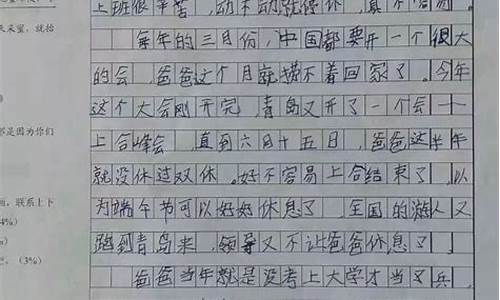 上班很辛苦,动不动就停休,真不容易。
天采蜜,就抬
每年的三月份,中国都要开一个很大
的会,爸爸这个月就摸不着回家了。今年
这个大会刚开完,青岛又开了一个会——
都是因为你们
上合峰会,直到六月十五日,爸爸这半年
就没休过双休。好不容易上合结束了,以
联系上下
为端午节可以好好休息了,全国的游人又
4%)
跑到青岛来,领导又不让爸爸休息了。
(3%)
爸爸当年就是没考上大学才当了兵,